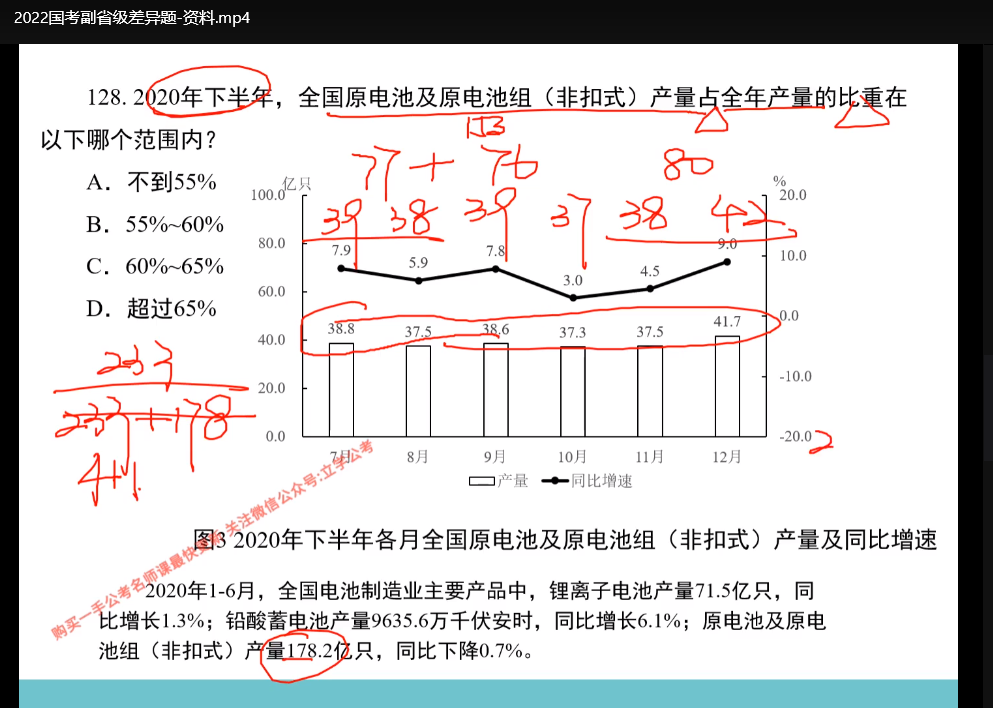 2022国考副省级差异题-资料.mp4
128. 2020年下半年，全国原电池及原电池组（非扣式）产量占全年产量的比重在
以下哪个范围内？
A．不到55%
B．55%~60%
C．60%~65%
D．超过65%
77+ 76 80
亿只 %
39 38 39 37 38 42
100.0 20.0
80.0 7.9 5.9 7.8 3.0 4.5 9.0 10.0
60.0 0.0
40.0 38.8 37.5 38.6 37.3 37.5 41.7 -10.0
20.0
0.0 -20.0 2
7月 8月 9月 10月 11月 12月
产量 同比增速
233
233+178
411
图3 2020年下半年各月全国原电池及原电池组（非扣式）产量及同比增速
2020年1-6月，全国电池制造业主要产品中，锂离子电池产量71.5亿只，同
比增长1.3%；铅酸蓄电池产量9635.6万千伏安时，同比增长6.1%；原电池及原电
池组（非扣式）产量178.2亿只，同比下降0.7%。
购买一手公考名师课最快更新 关注微信公众号:立学公考